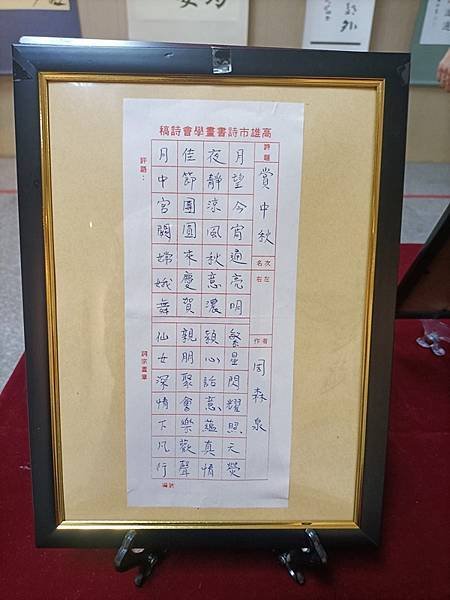 高雄市詩書畫學會詩稿
詩題
賞中秋
名次
右 左
作者
周森泉
月望今宵通亮明
繁星閃耀照天熒
夜靜涼風秋意濃
穎心話意蘊真情
佳節團圓來慶賀
親朋聚會樂歡聲
月中宮闕嫦娥舞
仙女深情下凡行
評語：
詞宗蓋章
編號